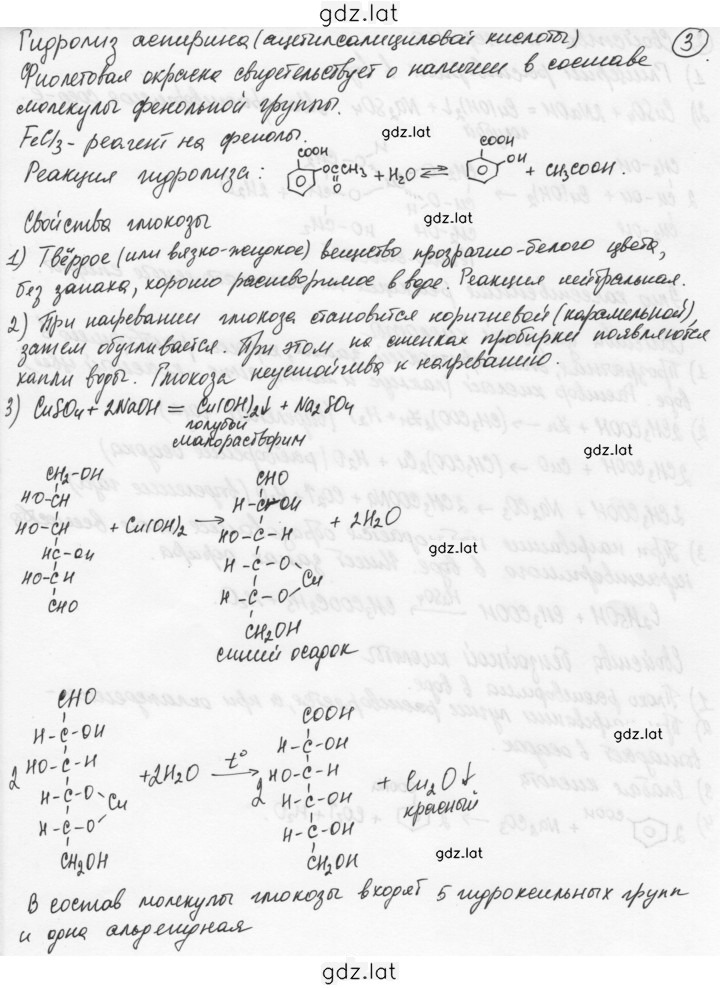 gdz.lat
Гидролиз аспирина (ацетилсалициловой кислоты) 3
Фиолетовая окраска свидетельствует о наличии в составе
молекулы фенольной группы.
gdz.lat
FeCl3 - реагент на фенолы.
Реакция гидролиза: COOH OCCH3 O + H2O ⇌ COOH OH + CH3COOH.
Свойства глюкозы
gdz.lat
1) Твёрдое (или вязко-жидкое) вещество прозрачно-белого цвета,
без запаха, хорошо растворимое в воде. Реакция нейтральная.
2) При нагревании глюкоза становится коричневой (карамельной),
затем обугливается. При этом на стенках пробирки появляются
капли воды. Глюкоза неустойчива к нагреванию.
3) CuSO4 + 2NaOH = Cu(OH)2↓ + Na2SO4
голубой
малорастворим
CH2-OH
HO-CH
HO-CH + Cu(OH)2 →
HC-OH
HO-CH
CHO
CHO
H-C-OH
HO-C-H + 2H2O
H-C-O
Cu
H-C-O
CH2OH
синий осадок
gdz.lat
CHO
H-C-OH
2 HO-C-H + 2H2O t° →
H-C-O
Cu
H-C-O
CH2OH
COOH
H-C-OH
2 HO-C-H + Cu2O↓
H-C-OH красный
H-C-OH
CH2OH
gdz.lat
В состав молекулы глюкозы входят 5 гидроксильных групп
и одна альдегидная
gdz.lat